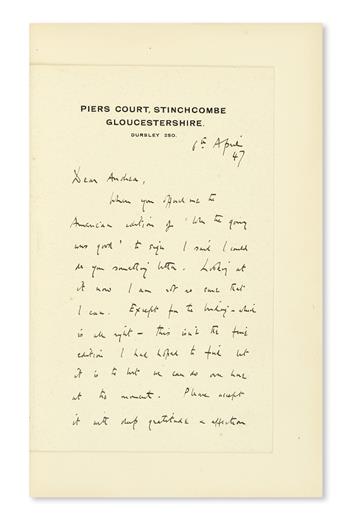 PIERS COURT, STINCHCOMBE
GLOUCESTERSHIRE.
DURSLEY 250.
6th April
47
Dear Andrew,
When you offered me the
American edition of 'When the going
was good' to sign I said I could
do you something better. Looking at
it now I am not so sure that
I can. Except for the binding – which
is all right – this isn't the fine
edition I had hoped to find but
it is the best we can do over here
at the moment. Please accept
it with deep gratitude & affection